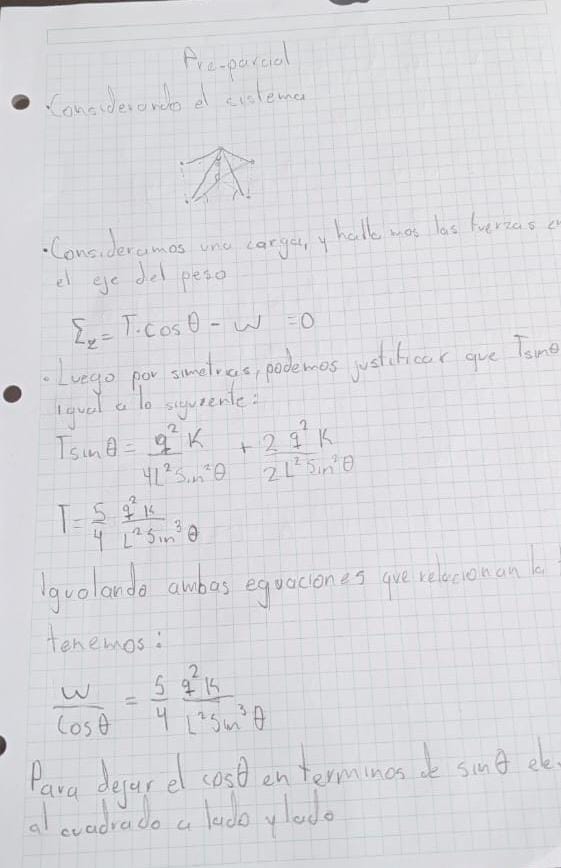 Pre-parcial
• Considerando el sistema
• Consideramos una carga, y hallemos las fuerzas en
el eje del peso
Σ_z = T·cosθ - W = 0
• Luego por simetrias, podemos justificar que Tsinθ
igual a lo siguiente:
Tsinθ = q²K / 4L²Sin²θ + 2q²K / 2L²Sin²θ
T = 5/4 q²K / L²Sin³θ
Igualando ambas equaciones que relacionan la
tenemos:
W / Cosθ = 5/4 q²K / L²Sin³θ
Para dejar el cosθ en terminos de sinθ ele
al cuadrado a lado y lado